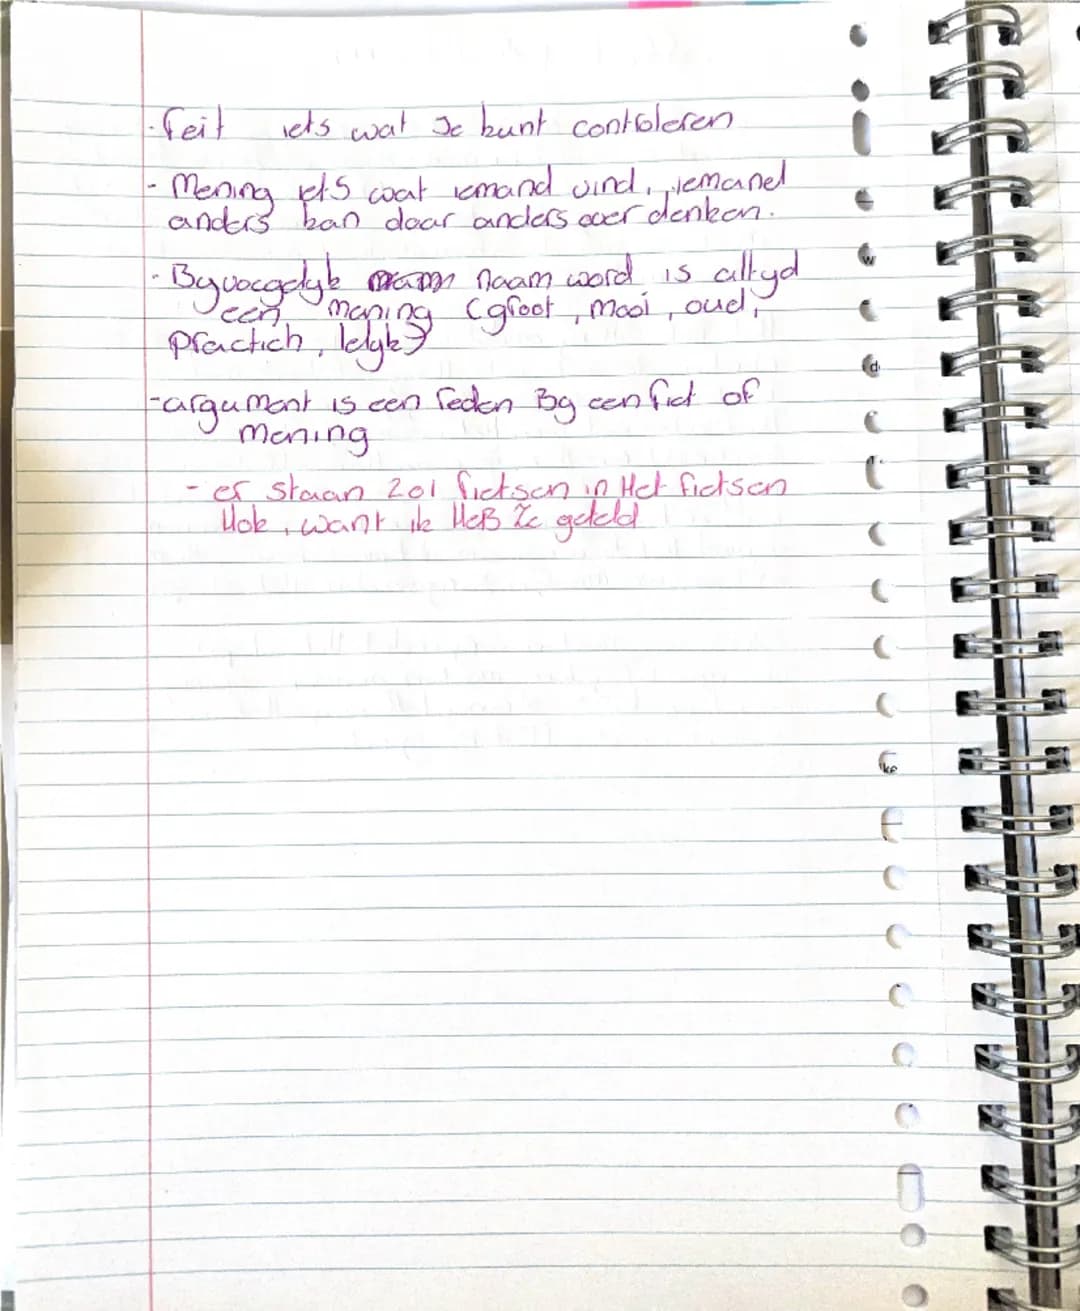 - feit iets wat Je kunt controleren
- Mening iets wat iemand vind, iemand
anders kan daar anders over denken.
- Byvoegelyk naam word is altyd
een mening (groot, mooi, oud,
practich, lelyk)
- argument is een reden By een fiet of
mening
- er staan 201 fietsen in Het fietsen
Hok, want ik HeB Ze geteld